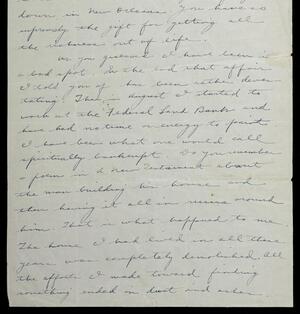 down in New Orleans. You have so
supremely the gift for getting all
the richness out of life.
As you guessed I have been in
a bad spot. In the end that affair
I told you of has been rather devas-
tating. Then in August I started to
work at the Federal Land Bank and
have had no time or energy to paint
I have been what one would call
spiritually bankrupt. Do you remember
a poem in a New Testament about
the man building his house and
then having it all in ruins around
him. That is what happened to me.
The house I had lived in all these
years was completely demolished. All
the efforts I made toward finding
something ended in dust and ashes.